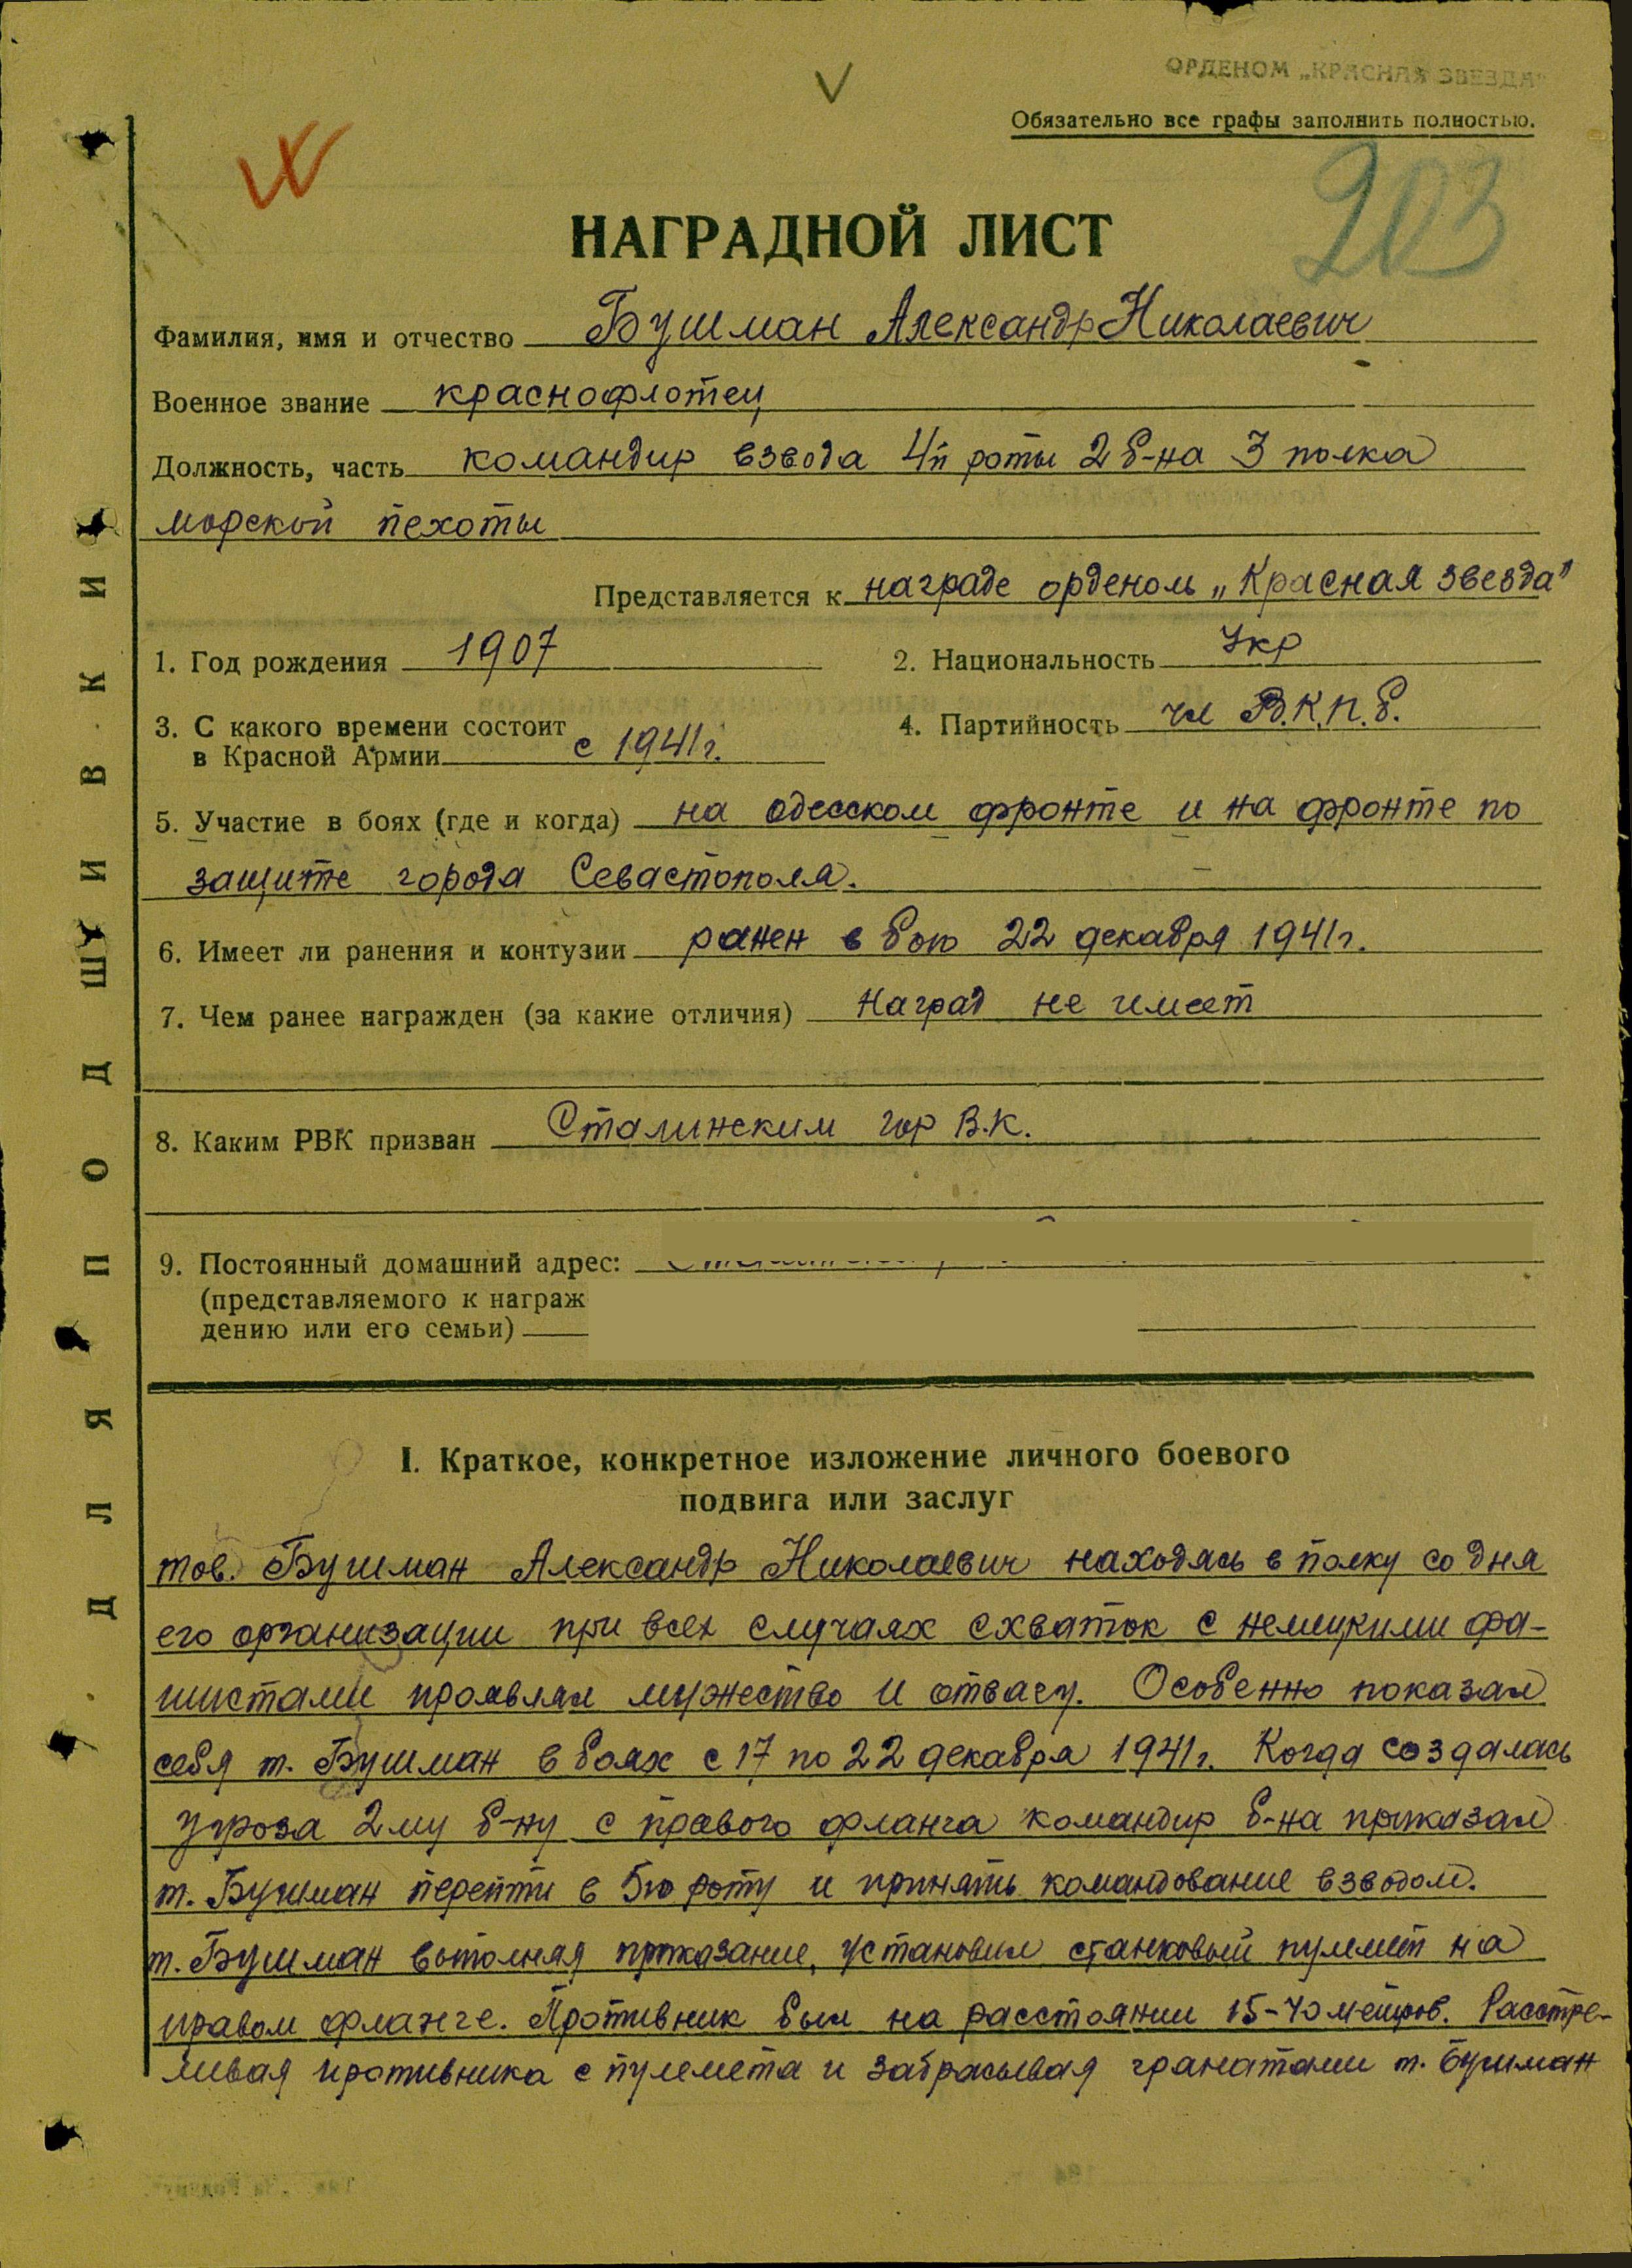 ОРДЕНОМ „КРАСНАЯ ЗВЕЗДА"
Обязательно все графы заполнить полностью.
203
НАГРАДНОЙ ЛИСТ
Фамилия, имя и отчество Бушман Александр Николаевич
Военное звание краснофлотец
Должность, часть командир взвода 4й роты 2 б-на 3 полка
морской пехоты
Представляется к награде орденом „Красная звезда"
1. Год рождения 1907 2. Национальность Укр
3. С какого времени состоит
в Красной Армии с 1941г. 4. Партийность чл В.К.П.б.
5. Участие в боях (где и когда) на одесском фронте и на фронте по
защите города Севастополя.
6. Имеет ли ранения и контузии ранен в бою 22 декабря 1941г.
7. Чем ранее награжден (за какие отличия) Наград не имеет
8. Каким РВК призван Сталинским гор В.К.
9. Постоянный домашний адрес:
(представляемого к награж
дению или его семьи)
I. Краткое, конкретное изложение личного боевого
подвига или заслуг
тов. Бушман Александр Николаевич находясь в полку со дня
его организации при всех случаях схваток с немецкими фа-
шистами проявлял мужество и отвагу. Особенно показал
себя т. Бушман в боях с 17 по 22 декабря 1941г. Когда создалась
угроза 2му б-ну с правого фланга командир б-на приказал
т. Бушман перейти в 5ю роту и принять командование взводом.
т. Бушман выполняя приказание, установил станковый пулемёт на
правом фланге. Противник был на расстоянии 15-40 метров. Расстре-
ливая противника с пулемета и забрасывая гранатами т. Бушман
ДЛЯ ПОДШИВКИ